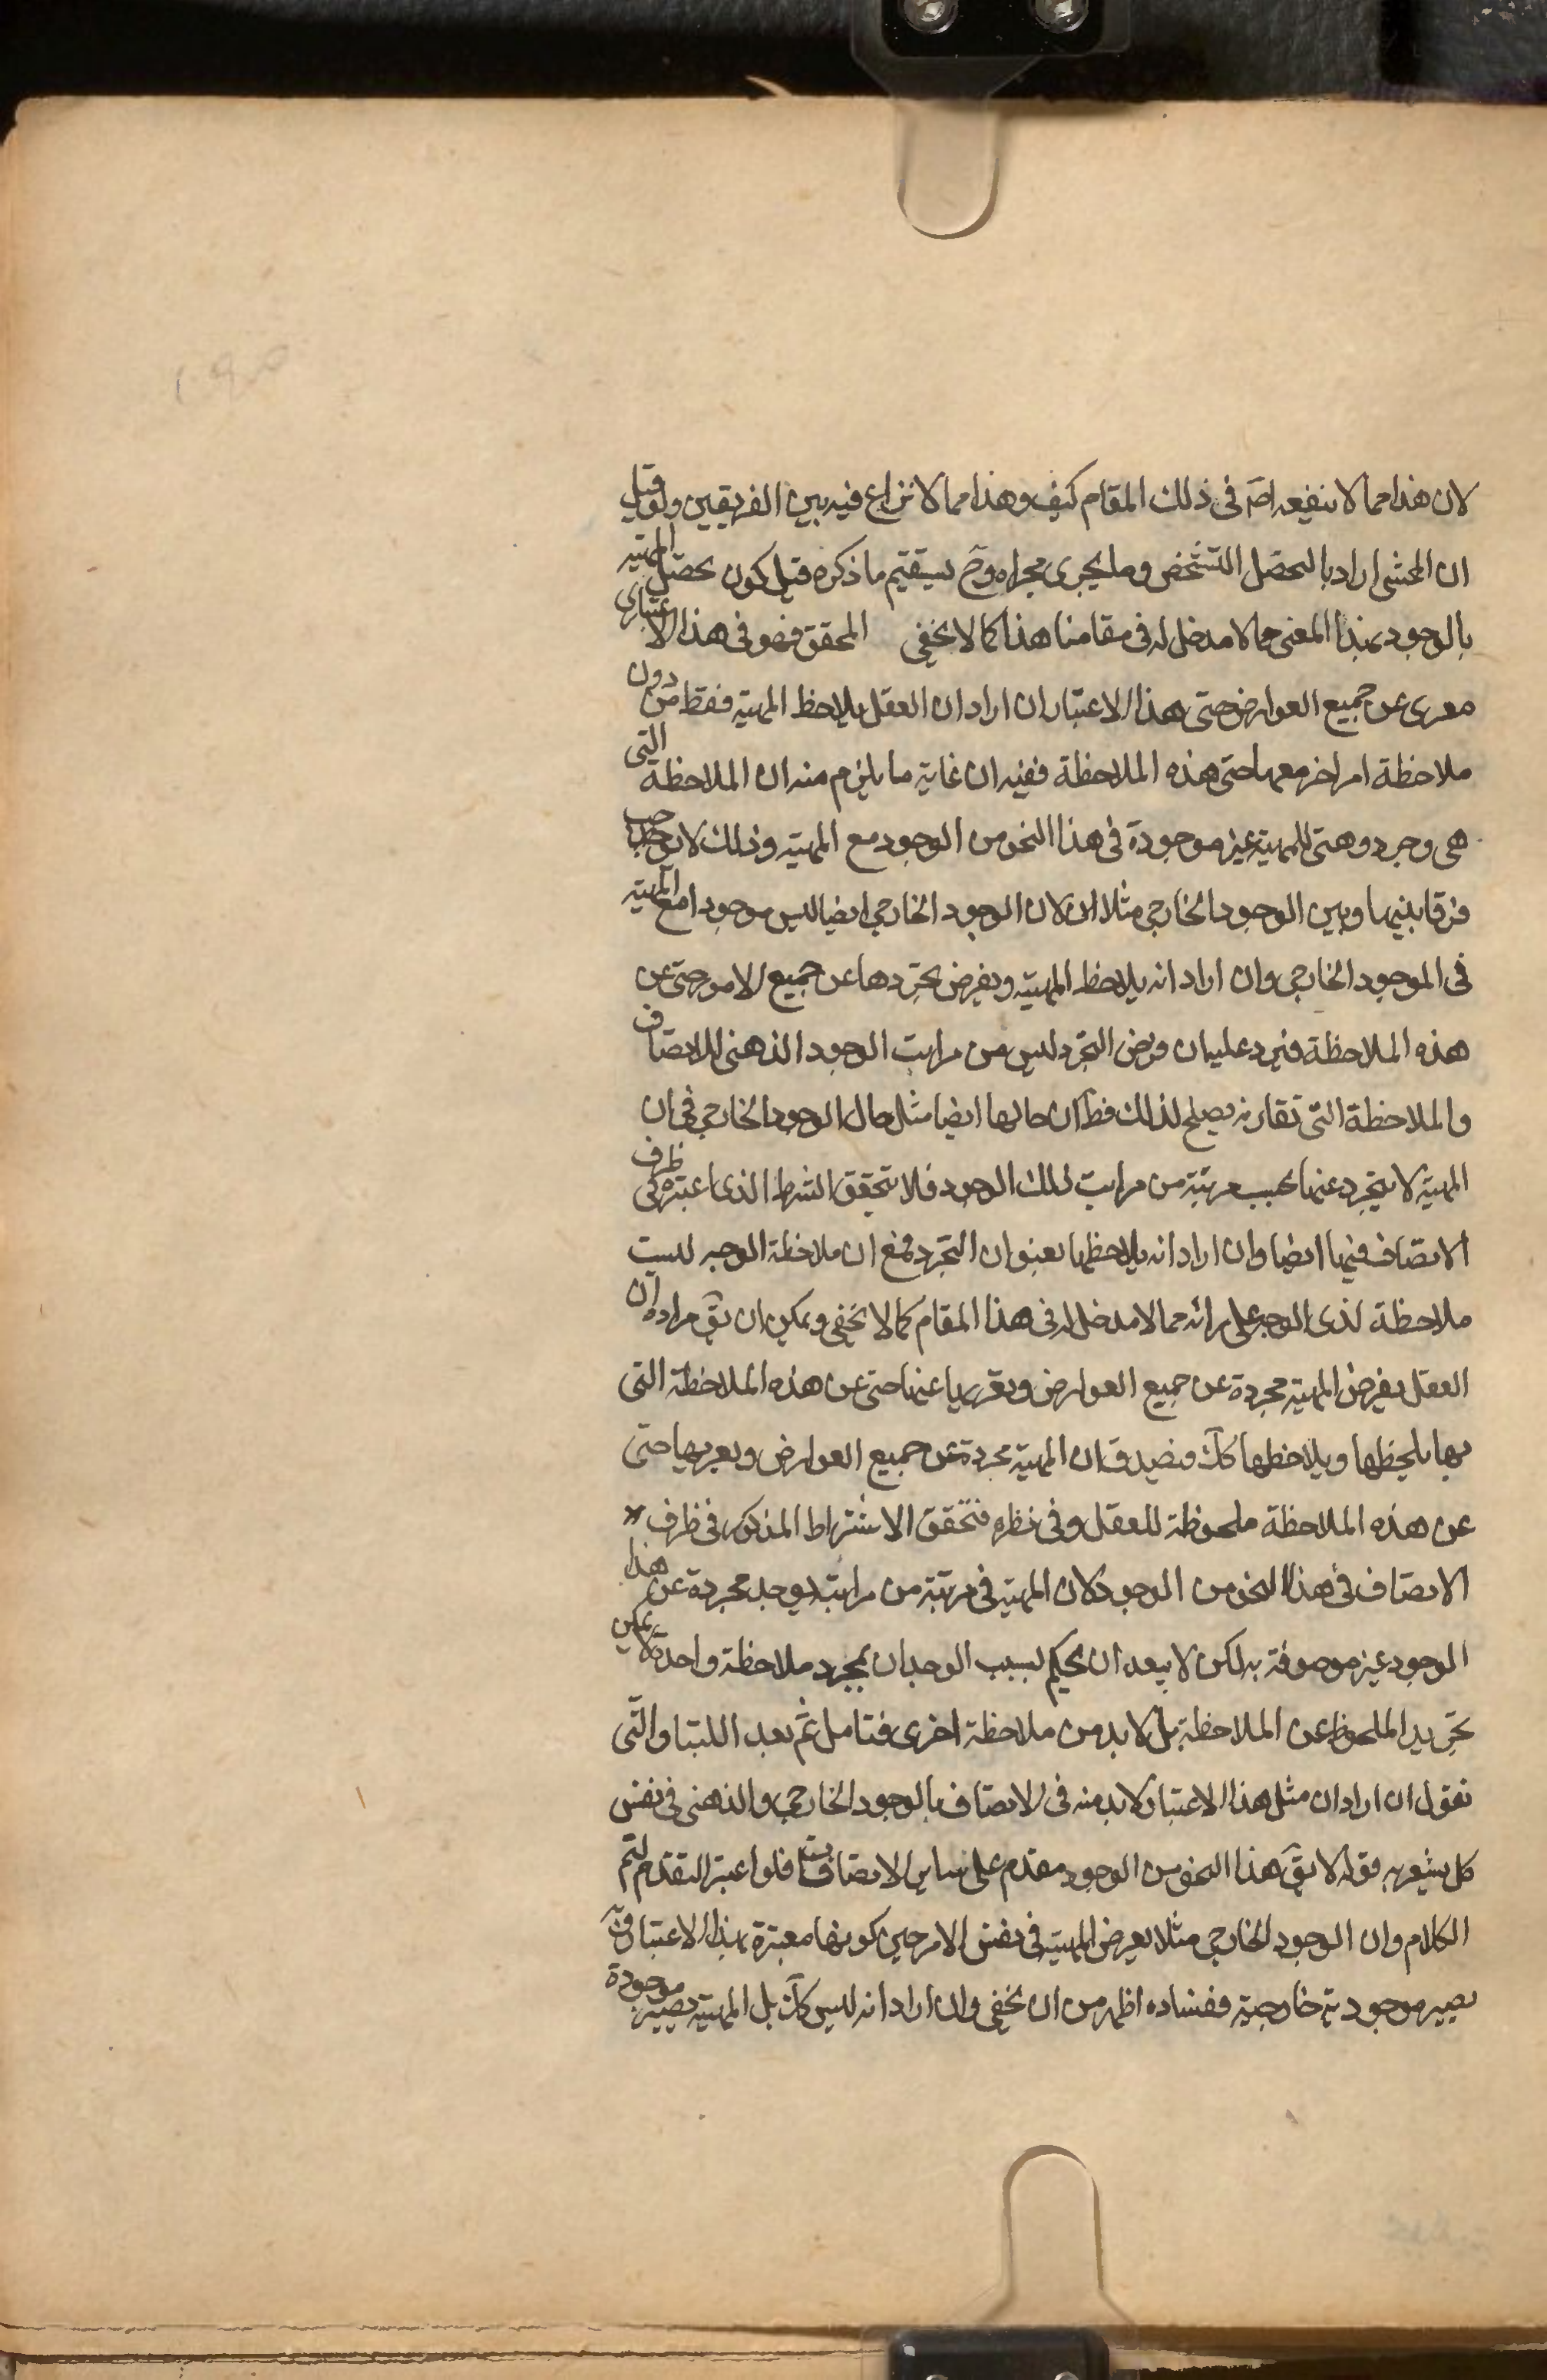 لان هذا مما لا ينفعه اصَ فى ذلك المقام كيف وهذا مما لا نزاع فيه بين الفريقين ولو قيل
ان المحشى اراد بالتحصّل التشخص وما يجرى مجراه وحَ يستقيم ما ذكره قيل كون تحصّل المهيّه
بالوجود بهذا المعنى مما لا مدخل له فى مقامنا هذا كما لا يخفى المحقق فهو فى هذا الاعتبارى
معرى عن جميع العوارض حتى هذا الاعتبار ان اراد ان العقل يلاحظ المهيّه فقط من دون
ملاحظة امر اخر معها حتى هذه الملاحظة ففيه ان غاية ما يلزم منه ان الملاحظة التى
هى وجود وهنى للمهيّة غير موجودة فى هذا النحو من الوجود مع المهيّه وذلك لا يوجب
فرقا بينها وبين الوجود الخارجى مثلا لان الوجود الخارجى ايضا ليس موجودا مع المهيّه
فى الموجود الخارجى وان اراد انه يلاحظ المهيّه ويفرض تجردها عن جميع الامور حتى عن
هذه الملاحظة فيرد عليه ان فرض التجرد ليس من مراتب الوجود الذهنى للاتصاف
والملاحظة التى تقارنه يصلح لذلك فظَ ان حالها ايضا مثل حال الوجود الخارجى فى ان
المهيّة لا يتجرد عنها بحسب مرتبة من مراتب لذلك الوجود فلا يتحقق الشرط الذى اعتبره فى ظرف
الاتصاف فيها ايضا وان اراد انه يلاحظها بعنوان التجرد فمع ان ملاحظة الوجه ليست
ملاحظة لذى الوجه على رائه مما لا مدخل له فى هذا المقام كما لا يخفى ويمكن ان يقَ مراده ان
العقل يفرض المهيّة مجردة عن جميع العوارض ويقررها عنها حتى عن هذه الملاحظة التى
بها يلحظها ويلاحظها كَك فيصدق ان المهيّة مجردة عن جميع العوارض ويعريها حتى
عن هذه الملاحظة ملحوظة للعقل وفى نظره فتحقق الاشتراط المذكور فى ظرف
الاتصاف فى هذا النحو من الوجود لان المهيّه فى مرتبة من مراتبه يوجد مجردة عن هذا
الوجود غير موصوفة به لكن لا يبعد ان يحكم بسبب الوجدان بمجرد ملاحظة واحدة لا يمكن
تجريد الملحوظ عن الملاحظة بل لا بد من ملاحظة اخرى فتامل ثم بعد اللتيا والّتى
نقول ان اراد ان مثل هذا الاعتبار لا بد منه فى الاتصاف بالوجود الخارجى والذهنى فى نفس
كل يشعر به قوله لا يقَ هذا النحو من الوجود مقدم على سائر الاتصافات فلو اعتبر التقدم لتم
الكلام وان الوجود الخارجى مثلا يعرض المهيّه فى نفس الامر حين كونها معتبرة بهذا الاعتبار
يصير موجودية خارجية ففساده اظهر من ان يخفى وان اراد انه ليس كَك بل المهيّه يصير موجودة